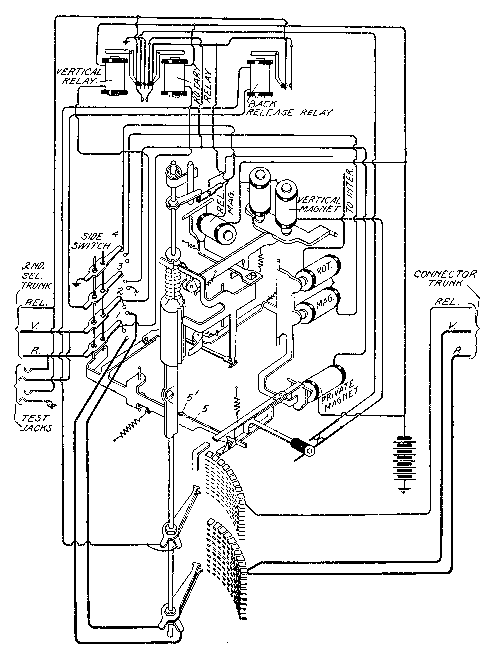 VERTICAL
RELAY.
ROTARY
RELAY
BACK
RELEASE RELAY
REL.
MAG.
VERTICAL
MAGNET
TO INTER.
SIDE
SWITCH
4
2ND.
SEL.
TRUNK
REL.
V.
R.
TEST
JACKS
ROT.
MAG.
PRIVATE
MAGNET
CONNECTOR
TRUNK
REL.
V.
R
5'
5